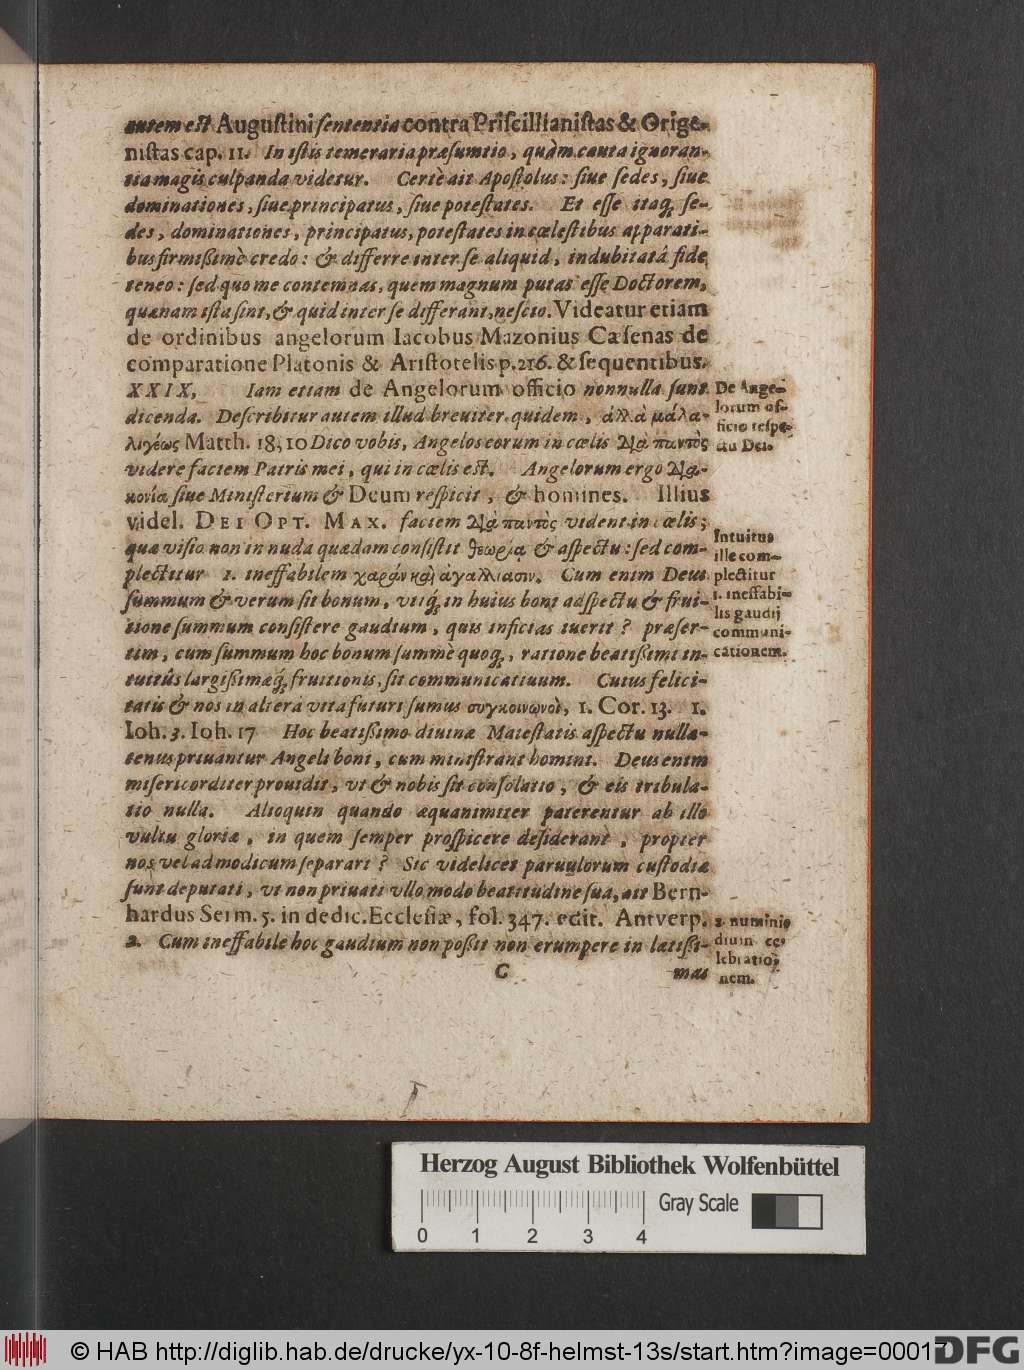 autem est Augustini sententia contra Priscillianistas & Orige-
nistas cap. 11. In istis temeraria præsumtio, quàm cauta ignoran-
tia magis culpanda videtur. Certè ait Apostolus: siue sedes, siue
dominationes, siue principatus, siue potestates. Et esse itaq; se-
des, dominationes, principatus, potestates in cœlestibus apparati-
bus firmißimè credo: & differre inter se aliquid, indubitatâ fide
teneo: sed quo me contemnas, quem magnum putas esse Doctorem,
quænam ista sint, & quid inter se differant, nescio. Videatur etiam
de ordinibus angelorum Iacobus Mazonius Cæsenas de
comparatione Platonis & Aristotelis p. 216. & sequentibus.
XXIX, Iam etiam de Angelorum officio nonnulla sunt
dicenda. Describitur autem illud breuiter quidem, ἀλλὰ μάλα-
λιγέως Matth. 18, 10 Dico vobis, Angelos eorum in cœlis διὰ παντὸς
videre faciem Patris mei, qui in cœlis est. Angelorum ergo δια-
κονία siue Ministerium & Deum respicit, & homines. Illius
videl. DEI OPT. MAX. faciem διὰ παντὸς vident in cœlis;
quæ visio non in nuda quædam consistit θεωρία & aspectu: sed com-
plectitur 1. ineffabilem χαρὰν καὶ ἀγαλλίασιν. Cum enim Deus
summum & verum sit bonum, vtiq; in huius boni adspectu & frui-
tione summum consistere gaudium, quis inficias iuerit? præser-
tim, cum summum hoc bonum summè quoq;, ratione beatißimi in-
tuitûs largißimæq; fruitionis, sit communicatiuum. Cuius felici-
tatis & nos in altera vita futuri sumus συγκοινωνοὶ, 1. Cor. 13. 1.
Ioh. 3. Ioh. 17 Hoc beatissimo diuinæ Maiestatis aspectu nulla-
tenus priuantur Angeli boni, cum ministrant homini. Deus enim
misericorditer prouidit, vt & nobis sit consolatio, & eis tribula-
tio nulla. Alioquin quando æquanimiter paterentur ab illo
vultu gloriæ, in quem semper prospicere desiderant, propter
nos vel ad modicum separari? Sic videlicet paruulorum custodiæ
sunt deputati, vt non priuati vllo modo beatitudine sua, ait Bern-
hardus Serm. 5. in dedic. Ecclesiæ, fol. 347. edit. Antverp.
2. Cum ineffabile hoc gaudium non poßit non erumpere in lætißi-
C mas
De Ange-
lorum of-
ficio respe-
ctu Dei.
Intuitus
ille com-
plectitur
1. ineffabi-
lis gaudij
communi-
cationem.
2. numinis
diuin ce-
lebratio-
nem.
Herzog August Bibliothek Wolfenbüttel
0 1 2 3 4
Gray Scale
© HAB http://diglib.hab.de/drucke/yx-10-8f-helmst-13s/start.htm?image=00017
DFG